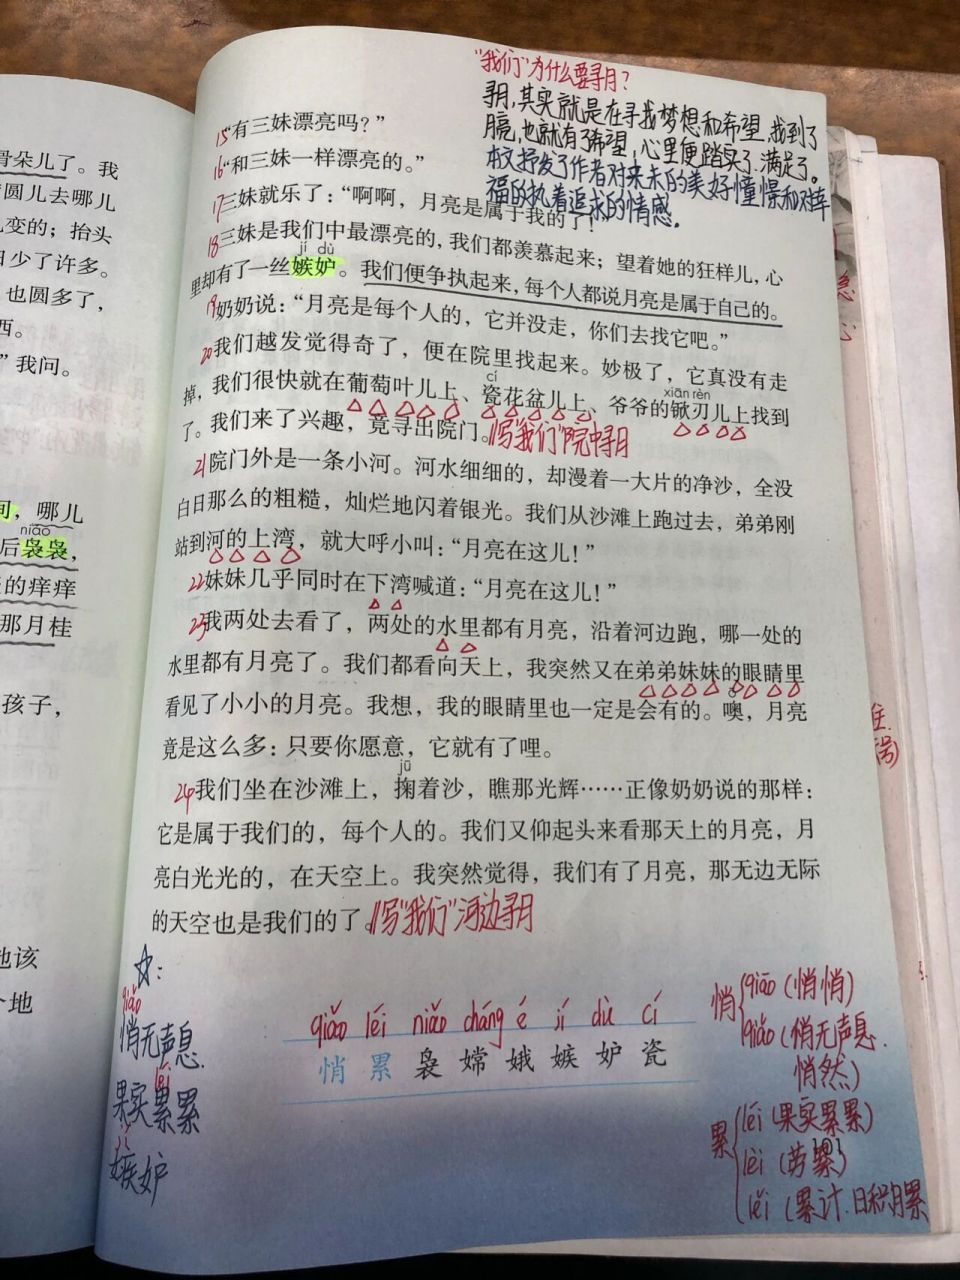 骨朵儿了。我
圆儿去哪儿
变的；抬头
少了许多。
也圆多了，
西。
”我问。
间，哪儿
niǎo
后袅袅，
的痒痒
那月桂
孩子，
地该
个地
“我们”为什么要寻月？
寻月，其实就是在寻找梦想和希望，找到了
月亮，也就有了希望，心里便踏实了、满足了。
本文抒发了作者对未来的美好憧憬和对幸
福的执着追求的情感。
15“有三妹漂亮吗？”
16“和三妹一样漂亮的。”
17三妹就乐了：“啊啊，月亮是属于我的了！”
18三妹是我们中最漂亮的，我们都羡慕起来；望着她的狂样儿，心
jí dù
里却有了一丝嫉妒。我们便争执起来，每个人都说月亮是属于自己的。
19奶奶说：“月亮是每个人的，它并没走，你们去找它吧。”
20我们越发觉得奇了，便在院里找起来。妙极了，它真没有走
cí
xiān rèn
掉，我们很快就在葡萄叶儿上、瓷花盆儿上、爷爷的锨刃儿上找到
了。我们来了兴趣，竟寻出院门。//写“我们”院中寻月
21院门外是一条小河。河水细细的，却漫着一大片的净沙，全没
白日那么的粗糙，灿烂地闪着银光。我们从沙滩上跑过去，弟弟刚
站到河的上湾，就大呼小叫：“月亮在这儿！”
22妹妹几乎同时在下湾喊道：“月亮在这儿！”
23我两处去看了，两处的水里都有月亮，沿着河边跑，哪一处的
水里都有月亮了。我们都看向天上，我突然又在弟弟妹妹的眼睛里
看见了小小的月亮。我想，我的眼睛里也一定是会有的。噢，月亮
竟是这么多：只要你愿意，它就有了哩。
jū
24我们坐在沙滩上，掬着沙，瞧那光辉……正像奶奶说的那样：
它是属于我们的，每个人的。我们又仰起头来看那天上的月亮，月
亮白光光的，在天空上。我突然觉得，我们有了月亮，那无边无际
的天空也是我们的了。//写“我们”河边寻月
☆：
qiǎo
悄无声息
léi
果实累累
嫉妒
qiǎo léi niǎo cháng é jí dù cí
悄 累 袅 嫦 娥 嫉 妒 瓷
悄 qiāo（悄悄）
qiǎo（悄无声息、
悄然）
累 léi（果实累累）
lèi（劳累）
lěi（累计、日积月累
101